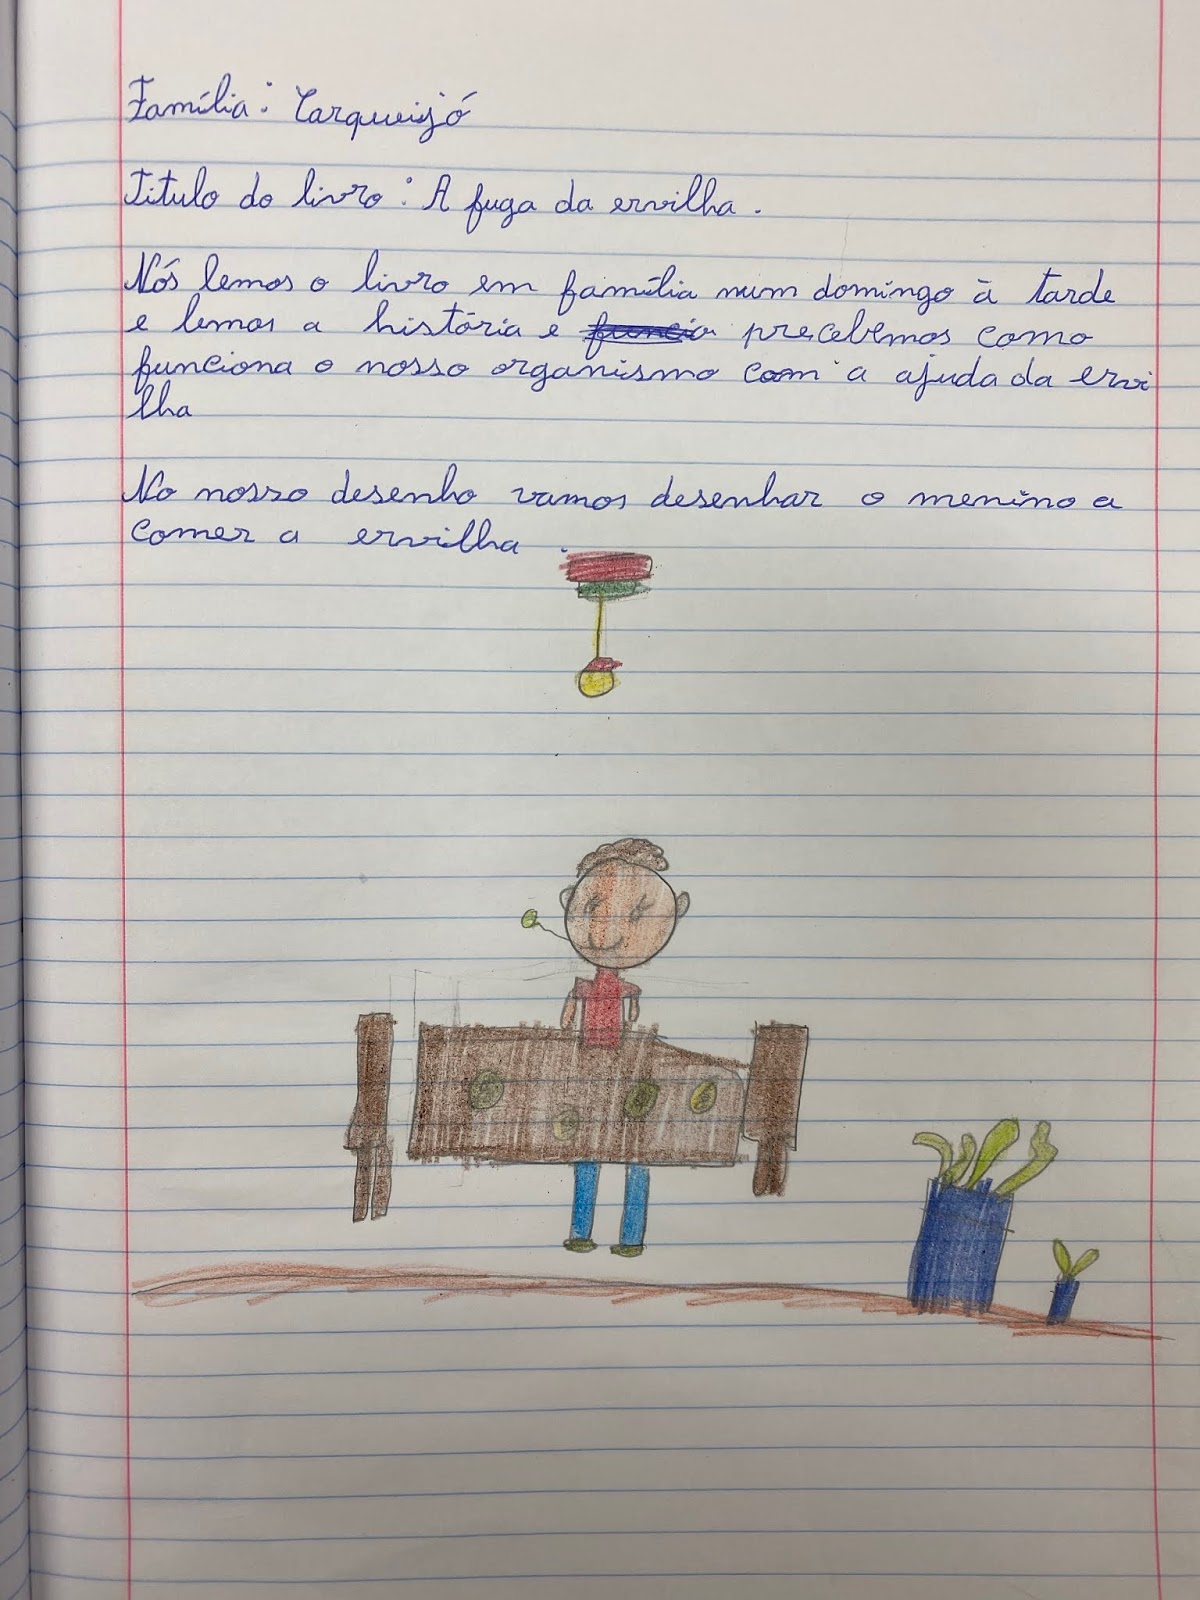 Família: Carqueijó
Titulo do livro: A fuga da ervilha.
Nós lemos o livro em família num domingo à tarde
e lemos a história e precebemos como
funciona o nosso organismo com a ajuda da ervi
lha
No nosso desenho vamos desenhar o menino a
comer a ervilha.